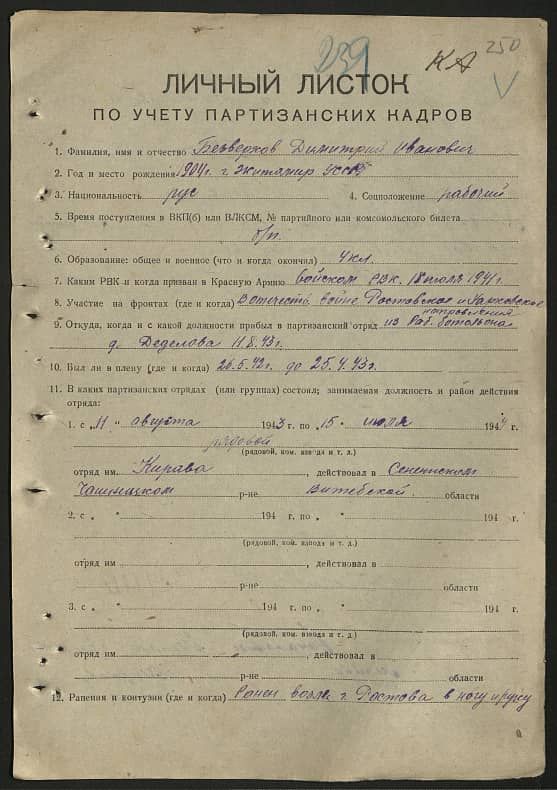 239 КА 250
ЛИЧНЫЙ ЛИСТОК
ПО УЧЕТУ ПАРТИЗАНСКИХ КАДРОВ
1. Фамилия, имя и отчество Безверков Димитрий Иванович
2. Год и место рождения 1904г. г. Житамир УССР
3. Национальность рус 4. Соцположение рабочий
5. Время поступления в ВКП(б) или ВЛКСМ, № партийного или комсомольского билета
б/п.
6. Образование: общее и военное (что и когда окончил) 4 кл.
7. Каким РВК и когда призван в Красную Армию РВК. 18 июля 1941 г.
8. Участие на фронтах (где и когда) В отечеств войне Ростовское и Харковское
направления
9. Откуда, когда и с какой должности прибыл в партизанский отряд из Раб. ботольона
д. Деделова 11.8.43г.
10. Был ли в плену (где и когда) 26.5.42г. до 25.4.43г.
11. В каких партизанских отрядах (или группах) состоял; занимаемая должность и район действия
отряда:
1. с „11" августа 1943 г. по „15" июля 1944 г.
рядовой
(рядовой, ком. взвода и т. д.)
отряд им. Кирава, действовал в Сененнском
Чашницком р-не Витебской области
2. с „ " 194 г. по „ " 194 г.
(рядовой, ком. взвода и т. д.)
отряд им. , действовал в
р-не области
3. с „ " 194 г. по „ " 194 г.
(рядовой, ком. взвода и т. д.)
отряд им. , действовал в
р-не области
12. Ранения и контузии (где и когда) Ранен возле г. Ростова в ногу и руку